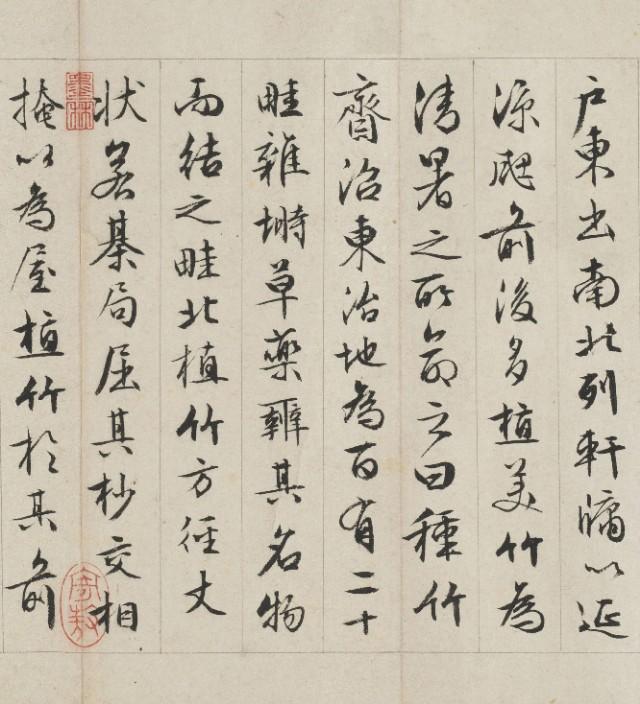 户東出南北列軒牖以延
涼颸前後多植美竹為
清暑之所命之曰種竹
齋沼東治地為百有二十
畦雜塒草藥辨其名物
而結之畦北植竹方徑丈
狀若棊局屈其杪交相
掩以為屋植竹於其前